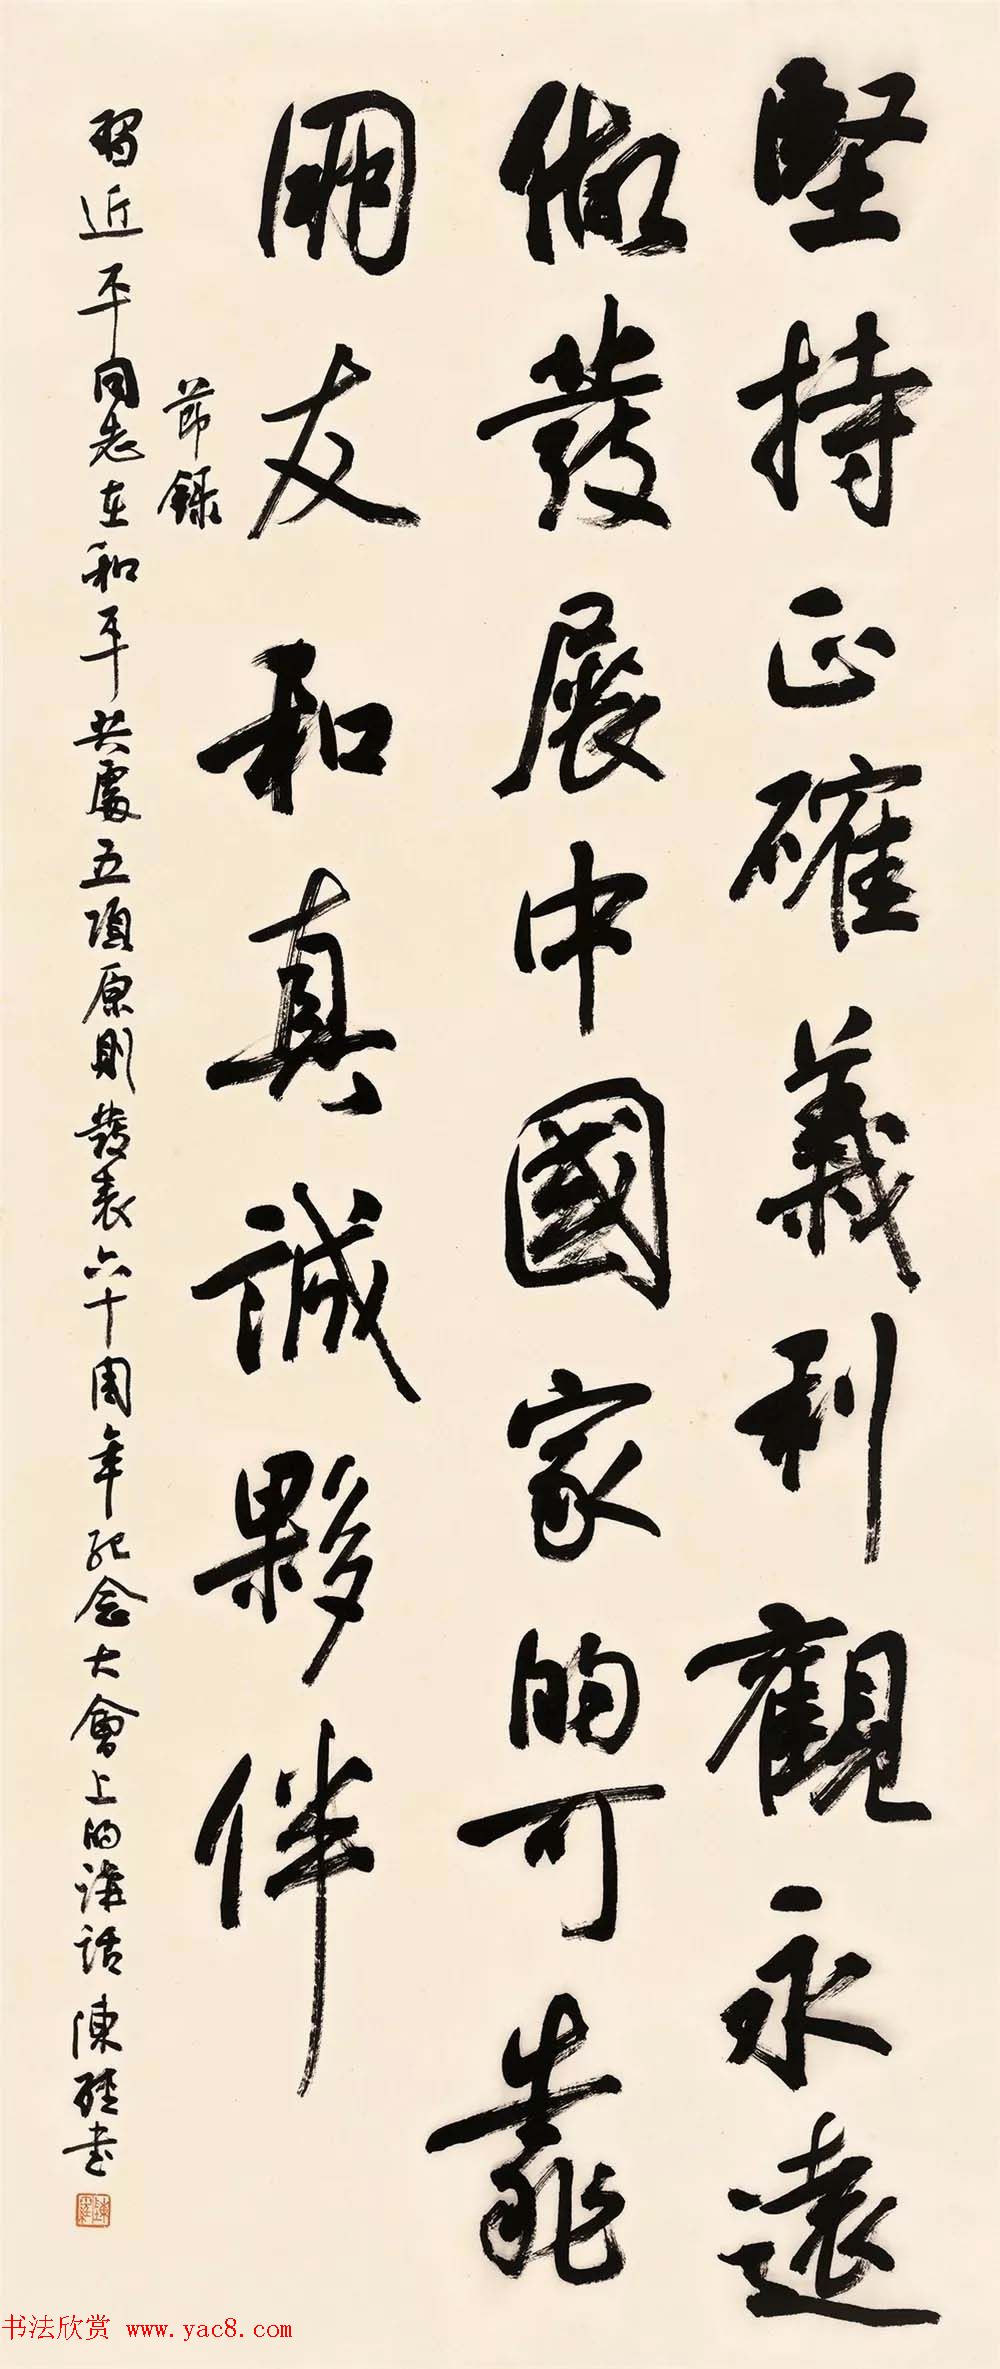 堅持正確義利觀永遠
做發展中國家的可靠
朋友和真誠夥伴
節錄
習近平同志在和平共處五項原則發表六十周年紀念大會上的講話 陳書
书法欣赏 www.yac8.com